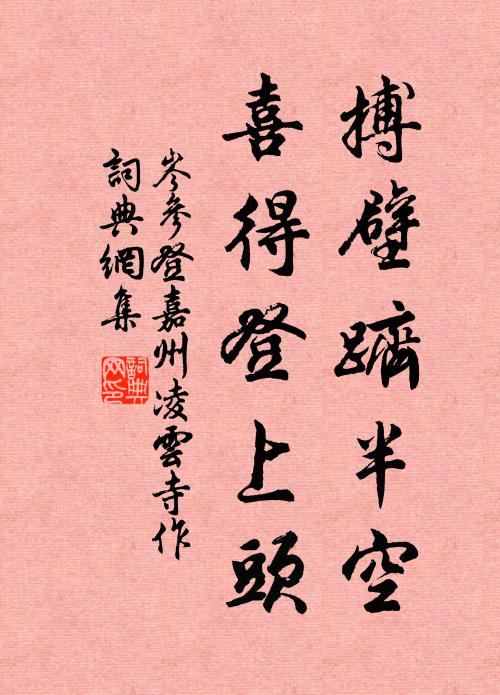 搏壁躋半空
喜得登上頭
岑參登嘉州凌雲寺作
詞典網集
詞典
网印